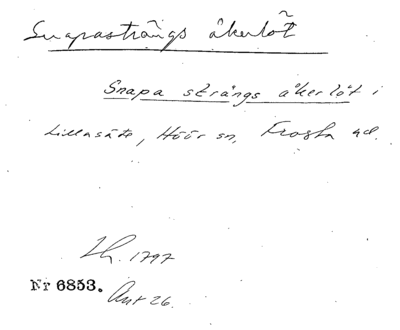 Snapasträngs åkerlöt
Snapa strängs åkerlöt i
Lillasäte, Höör sn, Frosta hd.
Lh. 1797
Nr 6853. Ant 26.